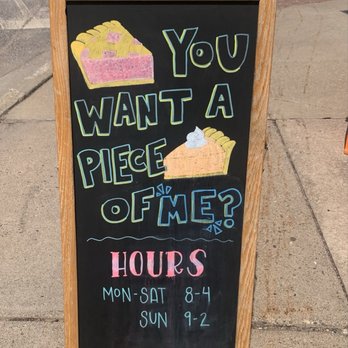 YOU
WANT A
PIECE
OF ME?
HOURS
MON-SAT 8-4
SUN 9-2